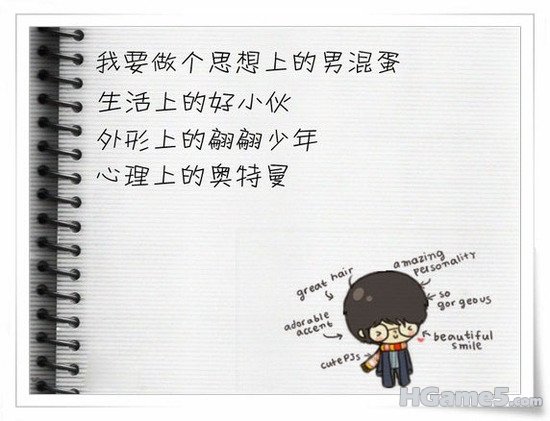 我要做个思想上的男混蛋
生活上的好小伙
外形上的翩翩少年
心理上的奥特曼
amazing
personality
great hair
so
gorgeous
adorable
accent
beautiful
smile
cute PJs
HGame5.com